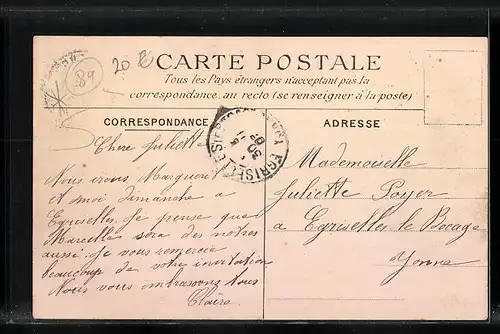 20 
89
CARTE POSTALE
Tous les Pays étrangers n'acceptant pas la
correspondance au recto (se renseigner à la poste)
CORRESPONDANCE
ADRESSE
Chere Juliette
Nous irons Marguerite
et moi dimanche a
Egriselles. Je pense que
Marcelle sera des notres
aussi. Je vous remercie
beaucoup de votre invitation
Nous vous embrassons tous
Claire
EGRISELLES
Mademoiselle
Juliette Poyer
a Egriselles le Bocage
Yonne